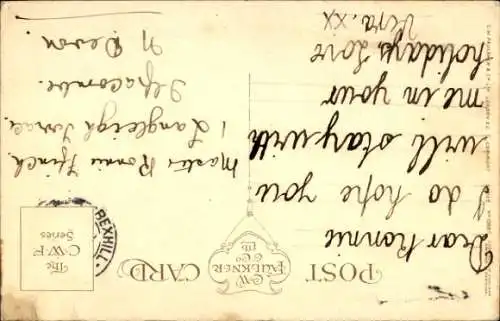 POST CARD
C.W. FAULKNER & Co Ltd.
The
C.W.F
Series
BEXHILL
Dear Ronnie
I do hope you
will stay with
me in your
holidays love
Vera. xx
Master Ronnie Finch
1 Langleigh Terrace
Ilfracombe.
N Devon.